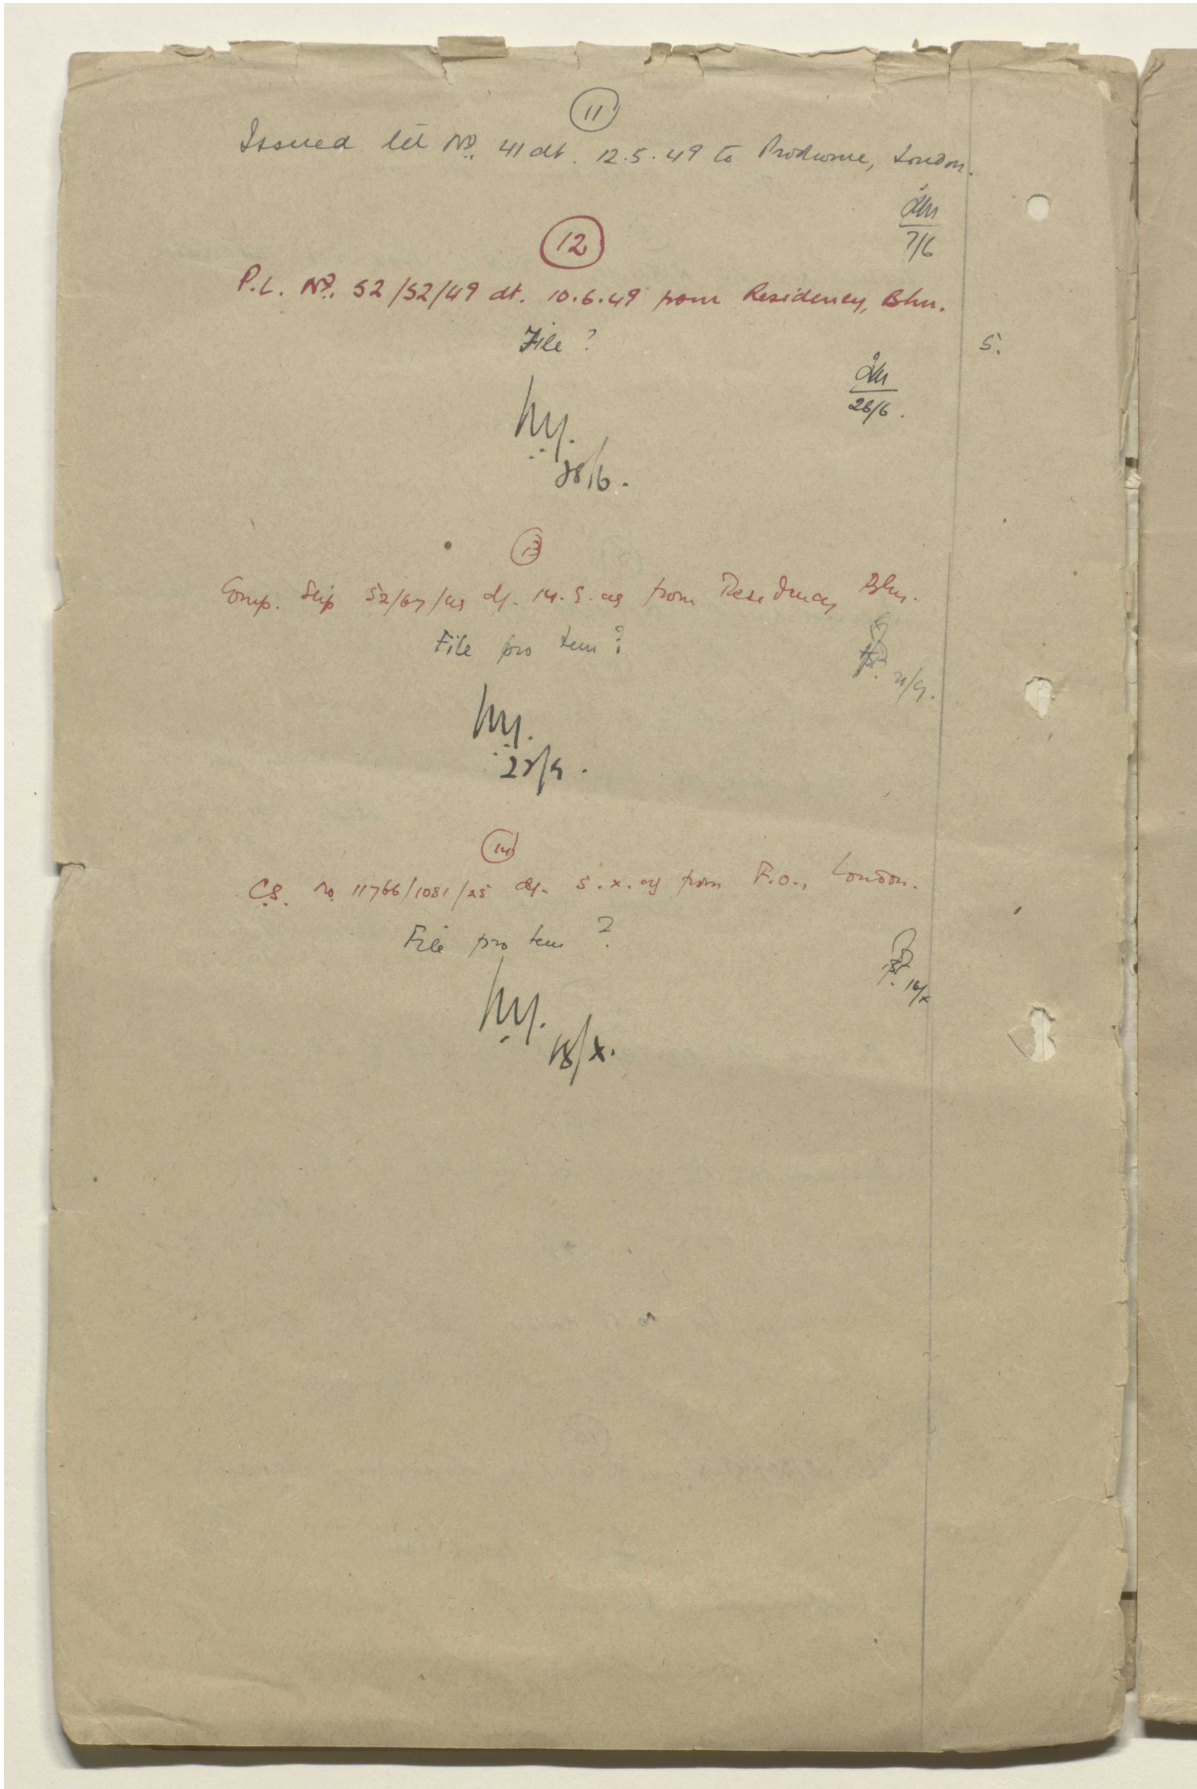 11
Issued let No. 41 dt. 12.5.49 to Prodrome, London.
7/6
12
P.L. No. 52/52/49 dt. 10.6.49 from Residency, Bhn.
File ?
5.
28/6.
28/6.
13
Comp. Slip 52/67/49 dt. 14.9.49 from Residency Bhn.
File pro tem ?
21/9.
22/9.
14
C.S. No 11766/1081/25 dt. 5.x.49 from F.O., London.
File pro tem ?
16/x
18/x.